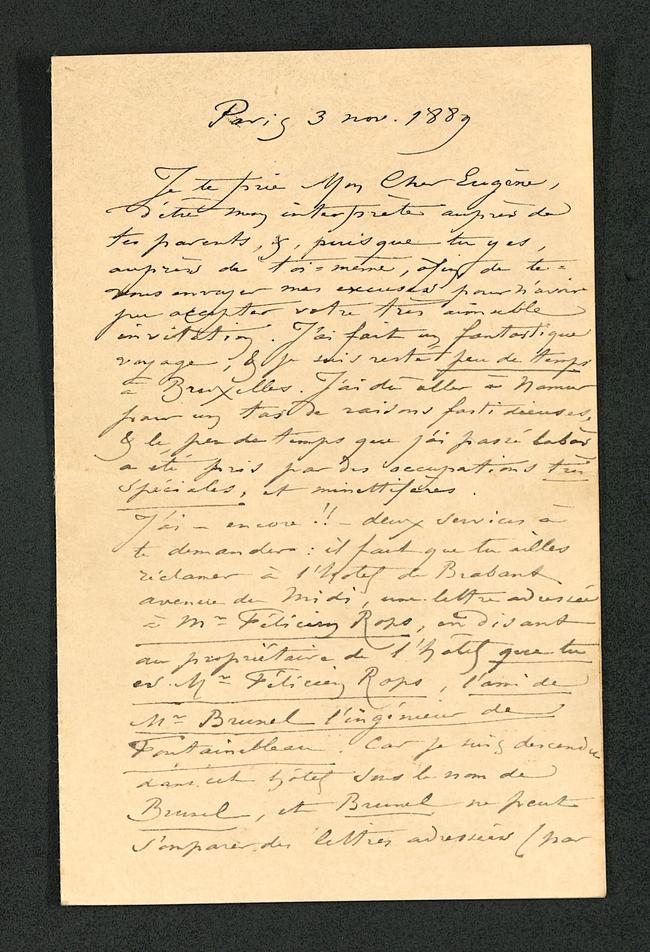 Paris 3 nov. 1889
Je te prie Mon Cher Eugène,
d'être mon interprète auprès de
tes parents, &, puisque tu y es,
auprès de toi=même, afin de te=
vous envoyer mes excuses pour n'avoir
pu accepter votre très aimable
invitation. J'ai fait un fantastique
voyage, & je suis resté peu de temps
à Bruxelles. J'ai dû aller à Namur
pour un tas de raisons fastidieuses,
& le peu de temps que j'ai passé
a été pris par des occupations très
spéciales, et minettifères.
J'ai – encore !! – deux services à
te demander : il faut que tu ailles
réclamer à l'hôtel de Brabant
avenue du Midi, une lettre adressée
à Mr Félicien Rops, en disant
au propriétaire de l'hôtel que tu
es Mr Félicien Rops, l'ami de
Mr Brunel l'ingénieur de
Fontainebleau. Car je suis descendu
dans cet hôtel sous le nom de
Brunel, et Brunel ne peut
s'emparer des lettres adressées (par